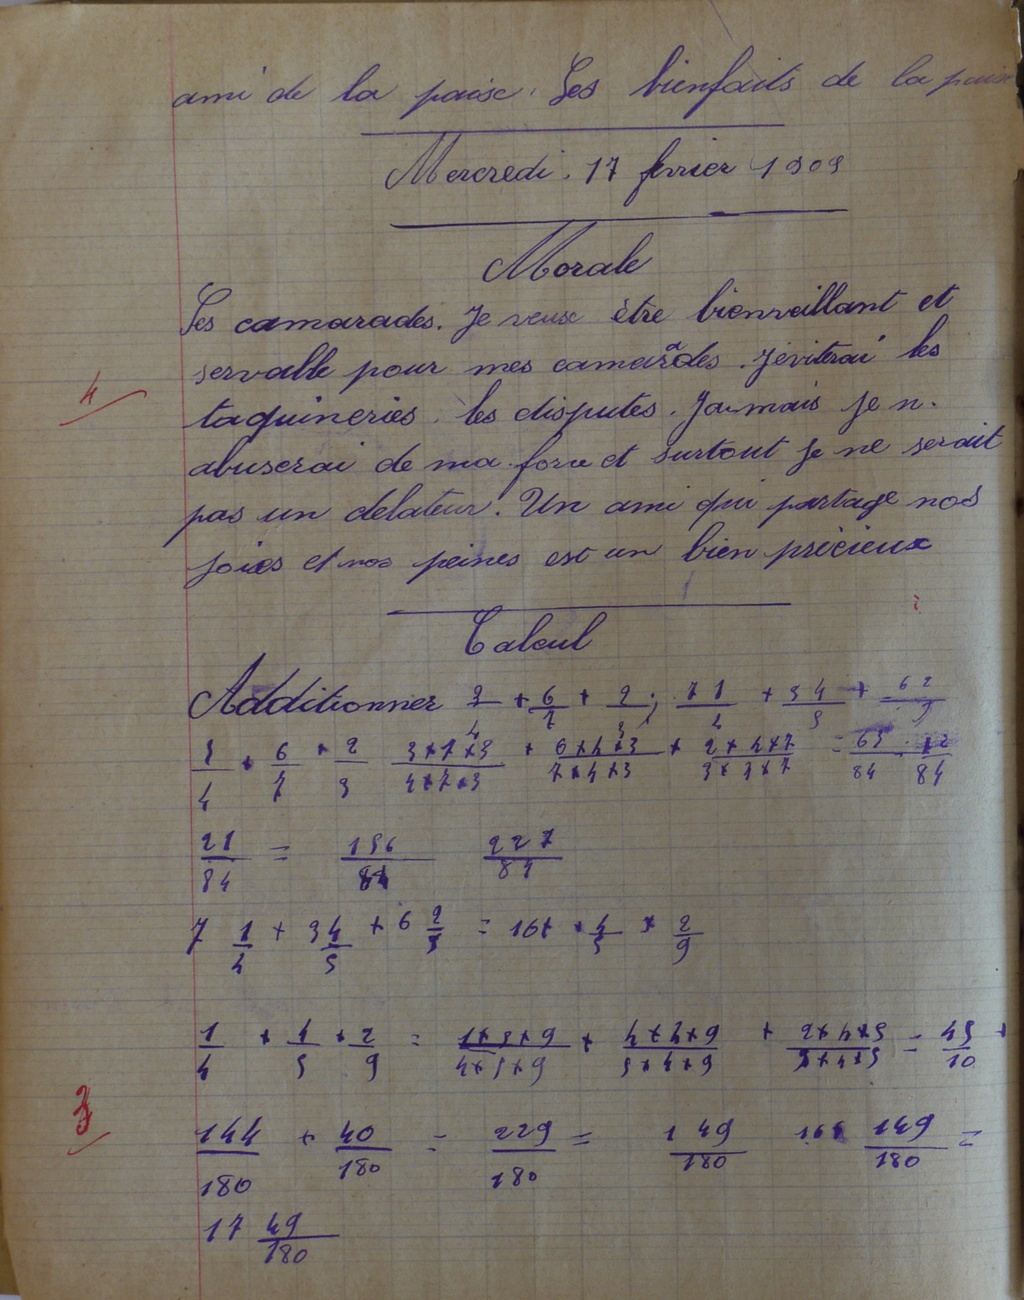 ami de la paise. Les bienfaits de la paise
Mercredi. 17 fevrier 1909
Morale
Les camarades. Je veuse être bienveillant et
servable pour mes camarades. J'eviterai les
4
taquineries. les disputes. Jamais je n.
abuserai de ma force et surtout je ne serait
pas un delateur. Un ami qui partage nos
joies et nos peines est un bien précieux
Calcul
Additionner 3/4 + 6/7 + 2/3; 7 1/4 + 3 4/5 + 6 2/9
3/4 + 6/7 + 2/3 3×7×3/4×7×3 + 6×4×3/7×4×3 + 2×4×7/3×4×7 = 63/84 + 72/84
21/84 = 156/84 227/84
7 1/4 + 3 4/5 + 6 2/9 = 16 + 4/5 + 2/9
1/4 + 4/5 + 2/9 = 1×5×9/4×5×9 + 4×4×9/5×4×9 + 2×4×5/9×4×5 = 45/10 +
3
144/180 + 40/180 = 229/180 = 1 49/180 16 149/180 =
17 49/180